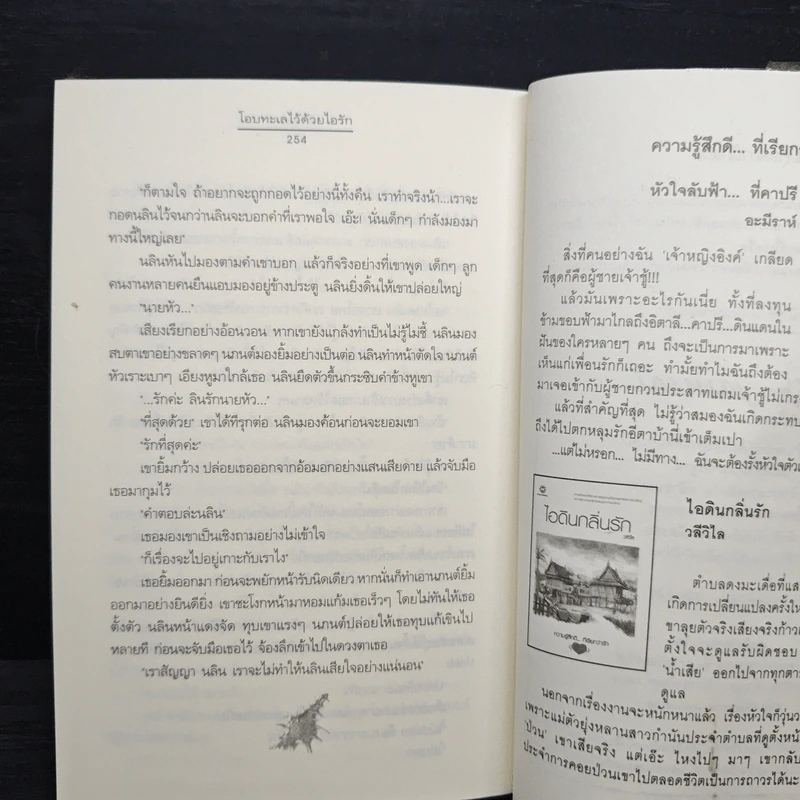 โอบทะเลไว้ด้วยไอรัก
254
"ก็ตามใจ ถ้าอยากจะถูกกอดไว้อย่างนี้ทั้งคืน เราทำจริงน้า...เราจะ
กอดนลินไว้จนกว่านลินจะบอกคำที่เราพอใจ เอ๊ะ! นั่นเด็กๆ กำลังมองมา
ทางนี้ใหญ่เลย"
นลินหันไปมองตามคำเขาบอก แล้วก็จริงอย่างที่เขาพูด เด็กๆ ลูก
คนงานหลายคนยืนแอบมองอยู่ข้างประตู นลินยิ่งดิ้นให้เขาปล่อยใหญ่
"นายหัว..."
เสียงเรียกอย่างอ้อนวอน หากเขายังแกล้งทำเป็นไม่รู้ไม่ชี้ นลินมอง
สบตาเขาอย่างขลาดๆ นภนต์มองยิ้มอย่างเป็นต่อ นลินทำหน้าตัดใจ นภนต์
หัวเราะเบาๆ เอียงหูมาใกล้เธอ นลินยืดตัวขึ้นกระซิบคำข้างหูเขา
"...รักค่ะ ลินรักนายหัว..."
"ที่สุดด้วย" เขาได้ทีรุกต่อ นลินมองค้อนก่อนจะยอมเขา
"รักที่สุดค่ะ"
เขายิ้มกว้าง ปล่อยเธอออกจากอ้อมอกอย่างแสนเสียดาย แล้วจับมือ
เธอมากุมไว้
"คำตอบล่ะนลิน"
เธอมองเขาเป็นเชิงถามอย่างไม่เข้าใจ
"ก็เรื่องจะไปอยู่เกาะกับเราไง"
เธอยิ้มออกมา ก่อนจะพยักหน้ารับนิดเดียว หากนั่นก็ทำเอานภนต์ยิ้ม
ออกมาอย่างยินดียิ่ง เขาชะโงกหน้ามาหอมแก้มเธอเร็วๆ โดยไม่ทันให้เธอ
ตั้งตัว นลินหน้าแดงจัด ทุบเขาแรงๆ นภนต์ปล่อยให้เธอทุบแก้เขินไป
หลายที ก่อนจะจับมือเธอไว้ จ้องลึกเข้าไปในดวงตาเธอ
"เราสัญญา นลิน เราจะไม่ทำให้นลินเสียใจอย่างแน่นอน"
ความรู้สึกดี... ที่เรียก
หัวใจลับฟ้า... ที่คาปรี
อะมีราห์
สิ่งที่คนอย่างฉัน 'เจ้าหญิงอิงค์' เกลียด
ที่สุดก็คือผู้ชายเจ้าชู้!!!
แล้วมันเพราะอะไรกันเนี่ย ทั้งที่ลงทุน
ข้ามขอบฟ้ามาไกลถึงอิตาลี...คาปรี...ดินแดนใน
ฝันของใครหลายๆ คน ถึงจะเป็นการมาเพราะ
เห็นแก่เพื่อนรักก็เถอะ ทำมั้ยทำไมฉันถึงต้อง
มาเจอเข้ากับผู้ชายกวนประสาทแถมเจ้าชู้ไม่เกร
แล้วที่สำคัญที่สุด ไม่รู้ว่าสมองฉันเกิดกระทบ
ถึงได้ไปตกหลุมรักอีตาบ้านี่เข้าเต็มเปา
...แต่ไม่หรอก... ไม่มีทาง... ฉันจะต้องรั้งหัวใจตัว
ไอดินกลิ่นรัก
วลีวิไล
ความรู้สึกดี... ที่เรียกว่ารัก
ไอดินกลิ่นรัก
วลีวิไล
ตำบลดงมะเดื่อที่แส
เกิดการเปลี่ยนแปลงครั้งให
ขาลุยตัวจริงเสียงจริงก้าว
ตั้งใจจะดูแลรับผิดชอบ
'น้ำเสีย' ออกไปจากทุกตา
ดูแล
นอกจากเรื่องงานจะหนักหนาแล้ว เรื่องหัวใจก็วุ่นว
เพราะแม่ตัวยุ่งหลานสาวกำนันประจำตำบลที่ดูตั้งหน้า
'ป่วน' เขาเสียจริง แต่เอ๊ะ ไหงไปๆ มาๆ เขากลับ
ประจำการคอยป่วนเขาไปตลอดชีวิตเป็นการถาวรได้นะ